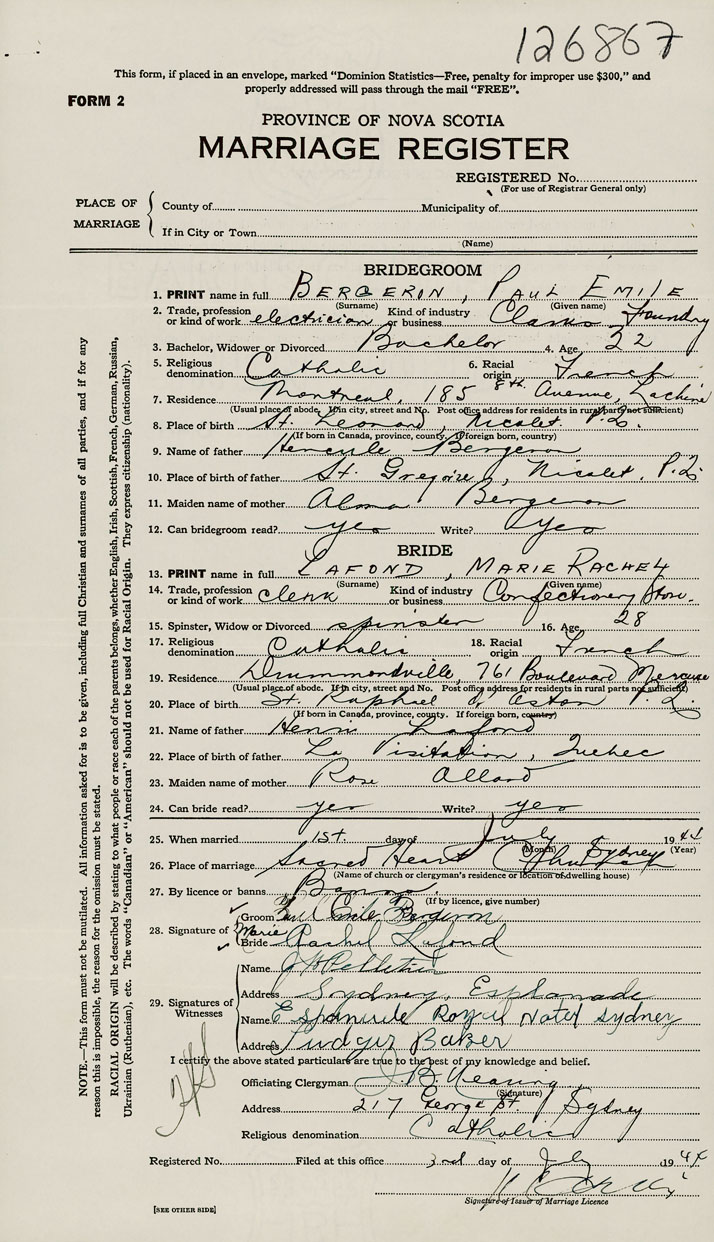 126867
This form, if placed in an envelope, marked "Dominion Statistics—Free, penalty for improper use $300," and
properly addressed will pass through the mail "FREE".
FORM 2
PROVINCE OF NOVA SCOTIA
MARRIAGE REGISTER
REGISTERED No.
(For use of Registrar General only)
PLACE OF MARRIAGE
County of Municipality of
If in City or Town
(Name)
BRIDEGROOM
1. PRINT name in full BERGERON, PAUL EMILE
(Surname) (Given name)
2. Trade, profession or kind of work electrician Kind of industry or business Clarks Foundry
3. Bachelor, Widower or Divorced Bachelor 4. Age 22
5. Religious denomination Catholic 6. Racial origin French
7. Residence Montreal, 185 8th Avenue, Lachine P.Q.
(Usual place of abode. If in city, street and No. Post office address for residents in rural parts not sufficient)
8. Place of birth St. Leonard, Nicolet
(If born in Canada, province, county. If foreign born, country)
9. Name of father Hercule Bergeron
10. Place of birth of father St. Gregoire, Nicolet, P.Q.
11. Maiden name of mother Alma Bergeron
12. Can bridegroom read? yes Write? yes
BRIDE
13. PRINT name in full LAFOND, MARIE RACHEL
(Surname) (Given name)
14. Trade, profession or kind of work clerk Kind of industry or business Confectionery Store
15. Spinster, Widow or Divorced spinster 16. Age 28
17. Religious denomination Catholic 18. Racial origin French
19. Residence Drummondville, 761 Boulevard Mercure
(Usual place of abode. If in city, street and No. Post office address for residents in rural parts not sufficient)
20. Place of birth St. Raphael d'Aston P.Q.
(If born in Canada, province, county. If foreign born, country)
21. Name of father Henri Lafond
22. Place of birth of father La Visitation, Quebec
23. Maiden name of mother Rose Allard
24. Can bride read? yes Write? yes
25. When married 1st day of July 1944
(Month) (Year)
26. Place of marriage Sacred Heart Church Sydney
(Name of church or clergyman's residence or location of dwelling house)
27. By licence or banns Banns
(If by licence, give number)
28. Signature of
Groom Paul Emile Bergeron
Bride Marie Rachel Lafond
29. Signatures of Witnesses
Name J H Pelletier
Address Sydney, Esplanade
Name Esplanade Royal Hotel Sydney
Address Baker
I certify the above stated particulars are true to the best of my knowledge and belief.
Officiating Clergyman
(Signature)
Address 217 George St. Sydney
Religious denomination Catholic
Registered No. Filed at this office 3rd day of July 1944
Signature of Issuer of Marriage Licence
[SEE OTHER SIDE]
NOTE.—This form must not be mutilated. All information asked for is to be given, including full Christian and surnames of all parties, and if for any
reason this is impossible, the reason for the omission must be stated.
RACIAL ORIGIN will be described by stating to what people or race each of the parents belongs, whether English, Irish, Scottish, French, German, Russian,
Ukrainian (Ruthenian), etc. The words "Canadian" or "American" should not be used for Racial Origin. They express citizenship (nationality).